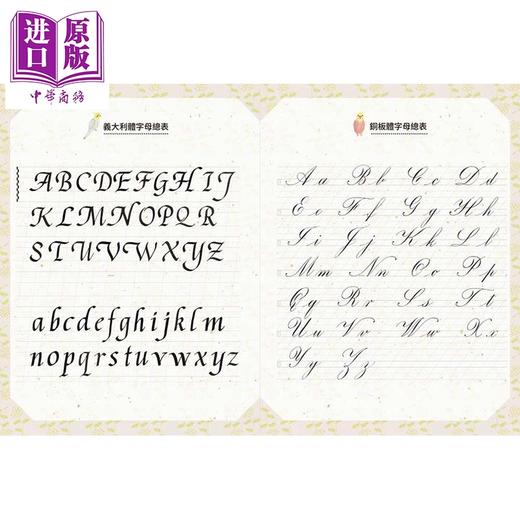 进口
原版
中華商務
義大利體字母總表
ABCDEFGHIJ
KLMNOPQR
STUVWXYZ
abcdefghijklm
nopqrstuvwxyz
銅板體字母總表
Aa Bb Cc Dd
Ee Ff Gg Hh
Ii Jj Kk Ll
Mm Nn Oo Pp
Qq Rr Ss Tt
Uu Vv Ww Xx
Yy Zz